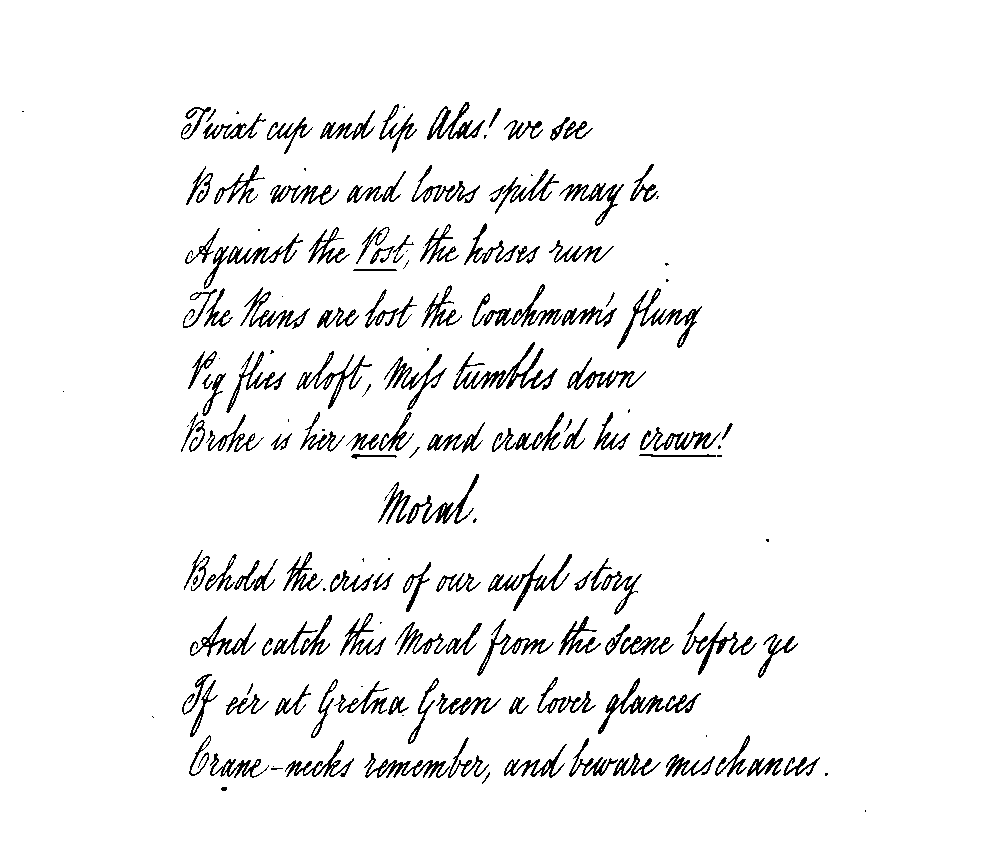 Twixt cup and lip Alas! we see
Both wine and lovers spilt may be.
Against the Post, the horses run
The Reins are lost the Coachman's flung
Pig flies aloft, Miſs tumbles down
Broke is her neck, and crack'd his crown!
Moral.
Behold the crisis of our awful story
And catch this Moral from the Scene before ye
If eér at Gretna Green a lover glances
Crane-necks remember, and beware mischances.